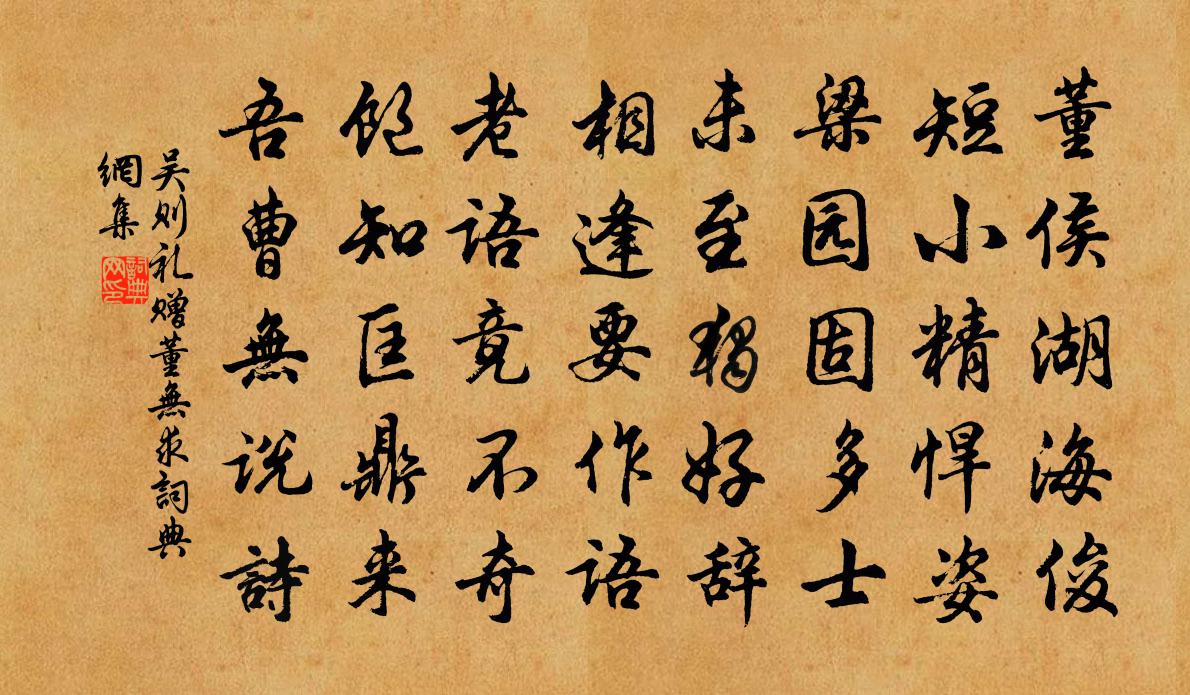 董侯湖海俊
短小精悍姿
梁园固多士
未至独好辞
相逢要作语
老语竟不奇
饱知匡鼎来
吾曹無说詩
吴则礼赠董無求詞典
網集
詞典
网印